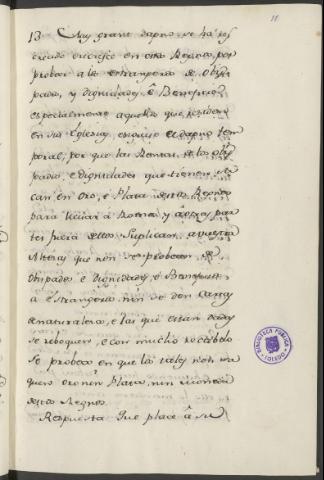 11
13 Muy grant dapno se ha re
crecido en estos Regnos, por
probar a los estrangeros de Obis
pados, y dignidades, é Beneficios
especialmente aquellos que residen
en sus Iglesias, es el dapno tem
poral, por que las Rentas de los obis
pados, e dignidades que tienen sa
can en Oro, e Plata destos Regnos
para llevar á Roma, y á otras par
tes fuera dellos Suplican á vuestra
Alteza que non se probean de
Obispados é Dignidades, é Beneficios
a estrangeros nin se den Cartas
de naturaleza, e las que estan dadas
se reboquen, e con mucho
se probea en que los tales non sa
quen oro nin Plata, nin moneda
destos Regnos
Respuesta Que place á su
BIBLIOTECA PUBLICA TOLEDO